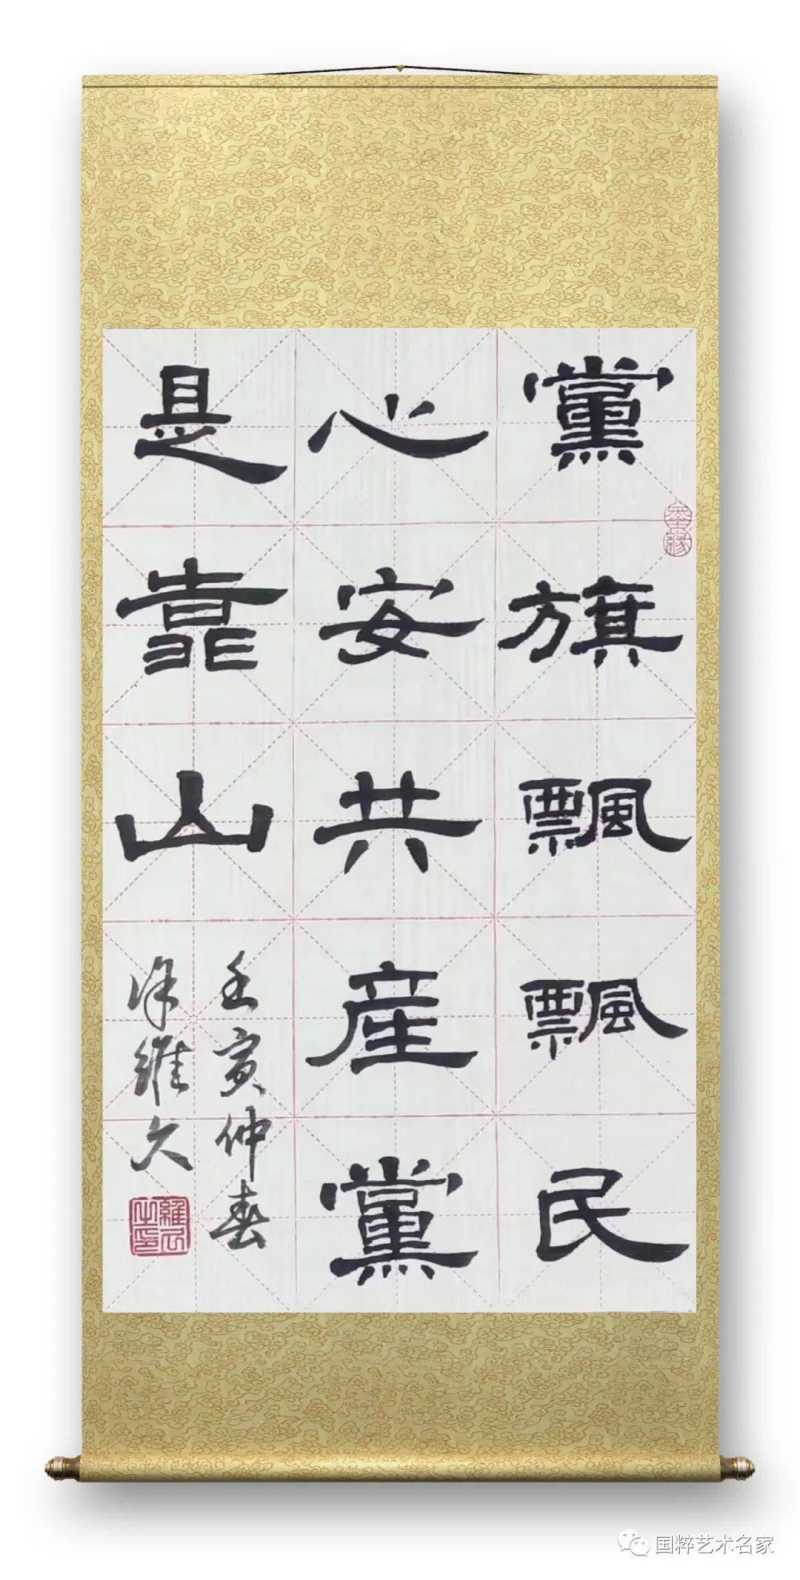 黨旗飄飄民
心安共産黨
是靠山
壬寅仲春
徐維久
墨緣
国粹艺术名家